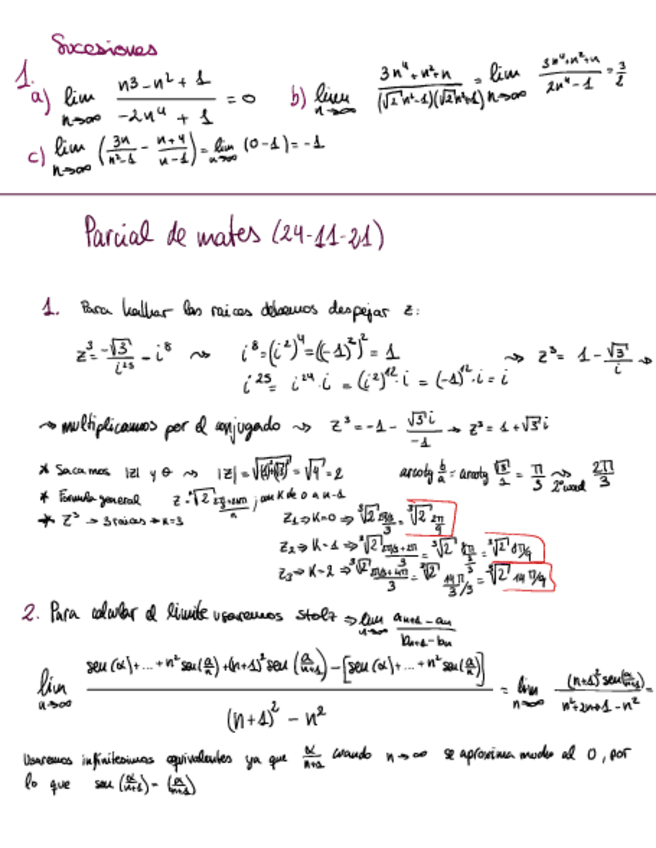 Sucesiones
1.
a) lim n→∞ (n3 - n² + 1)/(-2n⁴ + 1) = 0
b) lim n→∞ (3n⁴ + n² + n)/((√2 n² - 1)(√2 n² + 1)) = lim n→∞ (3n⁴ + n² + n)/(2n⁴ - 1) = 3/2
c) lim n→∞ (3n/(n²-1) - (n+4)/(n-1)) = lim n→∞ (0-1) = -1
Parcial de mates (24-11-21)
1. Para hallar las raices debemos despejar z:
z³ = -√3/i²⁵ - i⁸ ⇝ i⁸ = (i²)⁴ = ((-1)²)² = 1 ⇝ z³ = 1 - √3/i →
i²⁵ = i²⁴ · i = (i²)¹² · i = (-1)¹² · i = i
→ multiplicamos por el conjugado ⇝ z³ = -1 - √3 i/-1 → z³ = 1 + √3 i
* Sacamos |z| y θ ⇝ |z| = √4 = 2 arcotg b/a = arcotg √3/1 = π/3 ⇝ 2π/3
* Formula general ; con K de 0 a n-1
* z³ → 3 raices → K=3 z₁ ⇒ K=0 ⇒ ∛2 2π/3/3 = ∛2 2π/9
z₂ ⇒ K=1 ⇒ ∛2 2π/3+2π/3 = ∛2 8π/3/3 = ∛2 8π/9
z₃ ⇒ K=2 ⇒ ∛2 2π/3+4π/3 = ∛2 14π/3/3 = ∛2 14π/9
2. Para calcular el limite usaremos stolz ⇒ lim n→∞ (aₙ₊₁ - aₙ)/(bₙ₊₁ - bₙ)
lim n→∞ (sen(α) + ... + n² sen(α/n) + (n+1)² sen(α/n+1) - [sen(α) + ... + n² sen(α/n)])/((n+1)² - n²) = lim n→∞ ((n+1)² sen(α/n+1))/(n²+2n+1-n²) =
Usaremos infinitesimos equivalentes ya que α/n+1 cuando n→∞ se aproxima mucho al 0, por
lo que sen(α/n+1) = (α/n+1)